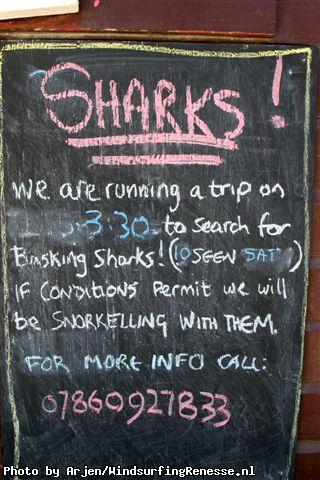 SHARKS!
we are running a trip on
3:30 to search for
Basking Sharks! (10 SEEN SAT)
IF CONDITIONS Permit we will
be SNORKELLING WITH THEM.
FOR MORE INFO CALL:
07860927833
Photo by Arjen/WindsurfingRenesse.nl